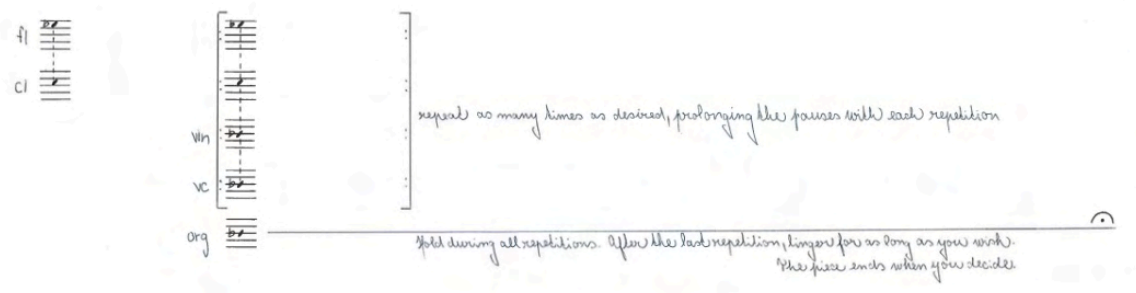 fl
cl
vln
vc
repeat as many times as desired, prolonging the pauses with each repetition
org
Hold during all repetitions. After the last repetition, linger for as long as you wish.
The piece ends when you decide